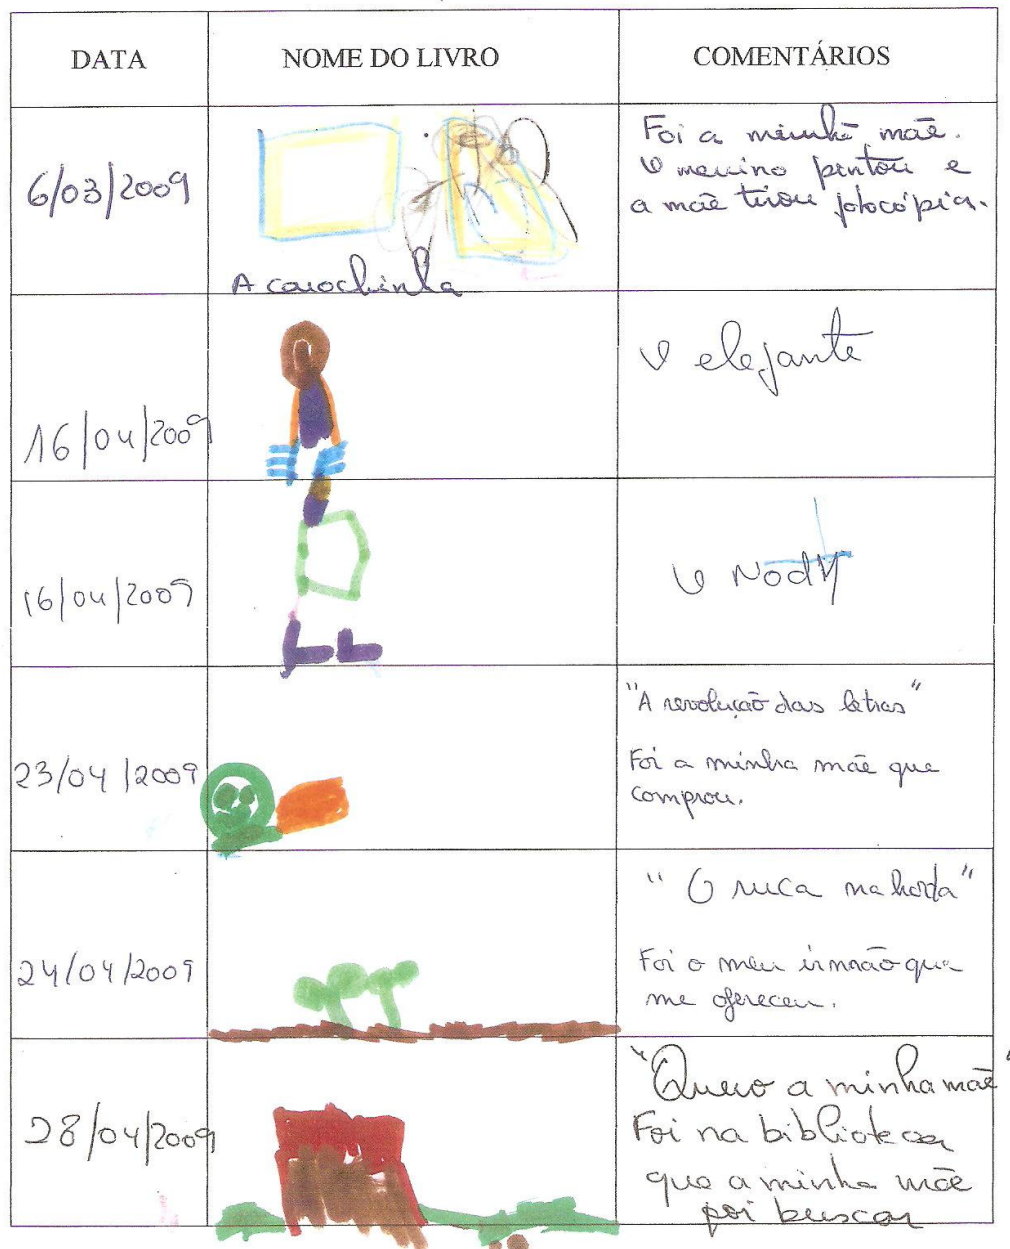 DATA NOME DO LIVRO COMENTÁRIOS
6/03/2009
A carochinha
Foi a minha mãe.
O menino pintou e
a mãe tirou fotocópia.
16/04/2009
O elefante
16/04/2009
O Nody
23/04/2009
"A revolução das letras"
Foi a minha mãe que
comprou.
24/04/2009
"O ruca na horta"
Foi o meu irmão que
me ofereceu.
28/04/2009
"Quero a minha mãe"
Foi na biblioteca
que a minha mãe
foi buscar